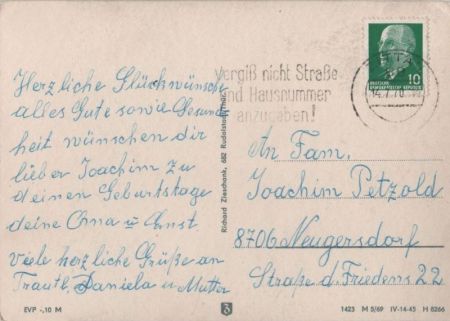 Herzliche Glückwünsche
alles Gute sowie Gesund
heit wünschen dir
lieber Joachim zu
deinen Geburtstage
deine Oma u. Ernst.
Viele herzliche Grüße an
Trautl, Daniela u. Mutter
EVP -,10 M
Richard Zieschank, 682 Rudolstadt
Vergiß nicht Straße
und Hausnummer
anzugeben!
10
DEUTSCHE
DEMOKRATISCHE REPUBLIK
14.7.70
An Fam.
Joachim Petzold
8706 Neugersdorf
Straße d. Friedens 22
1423 M 5/69 IV-14-45 H 8266